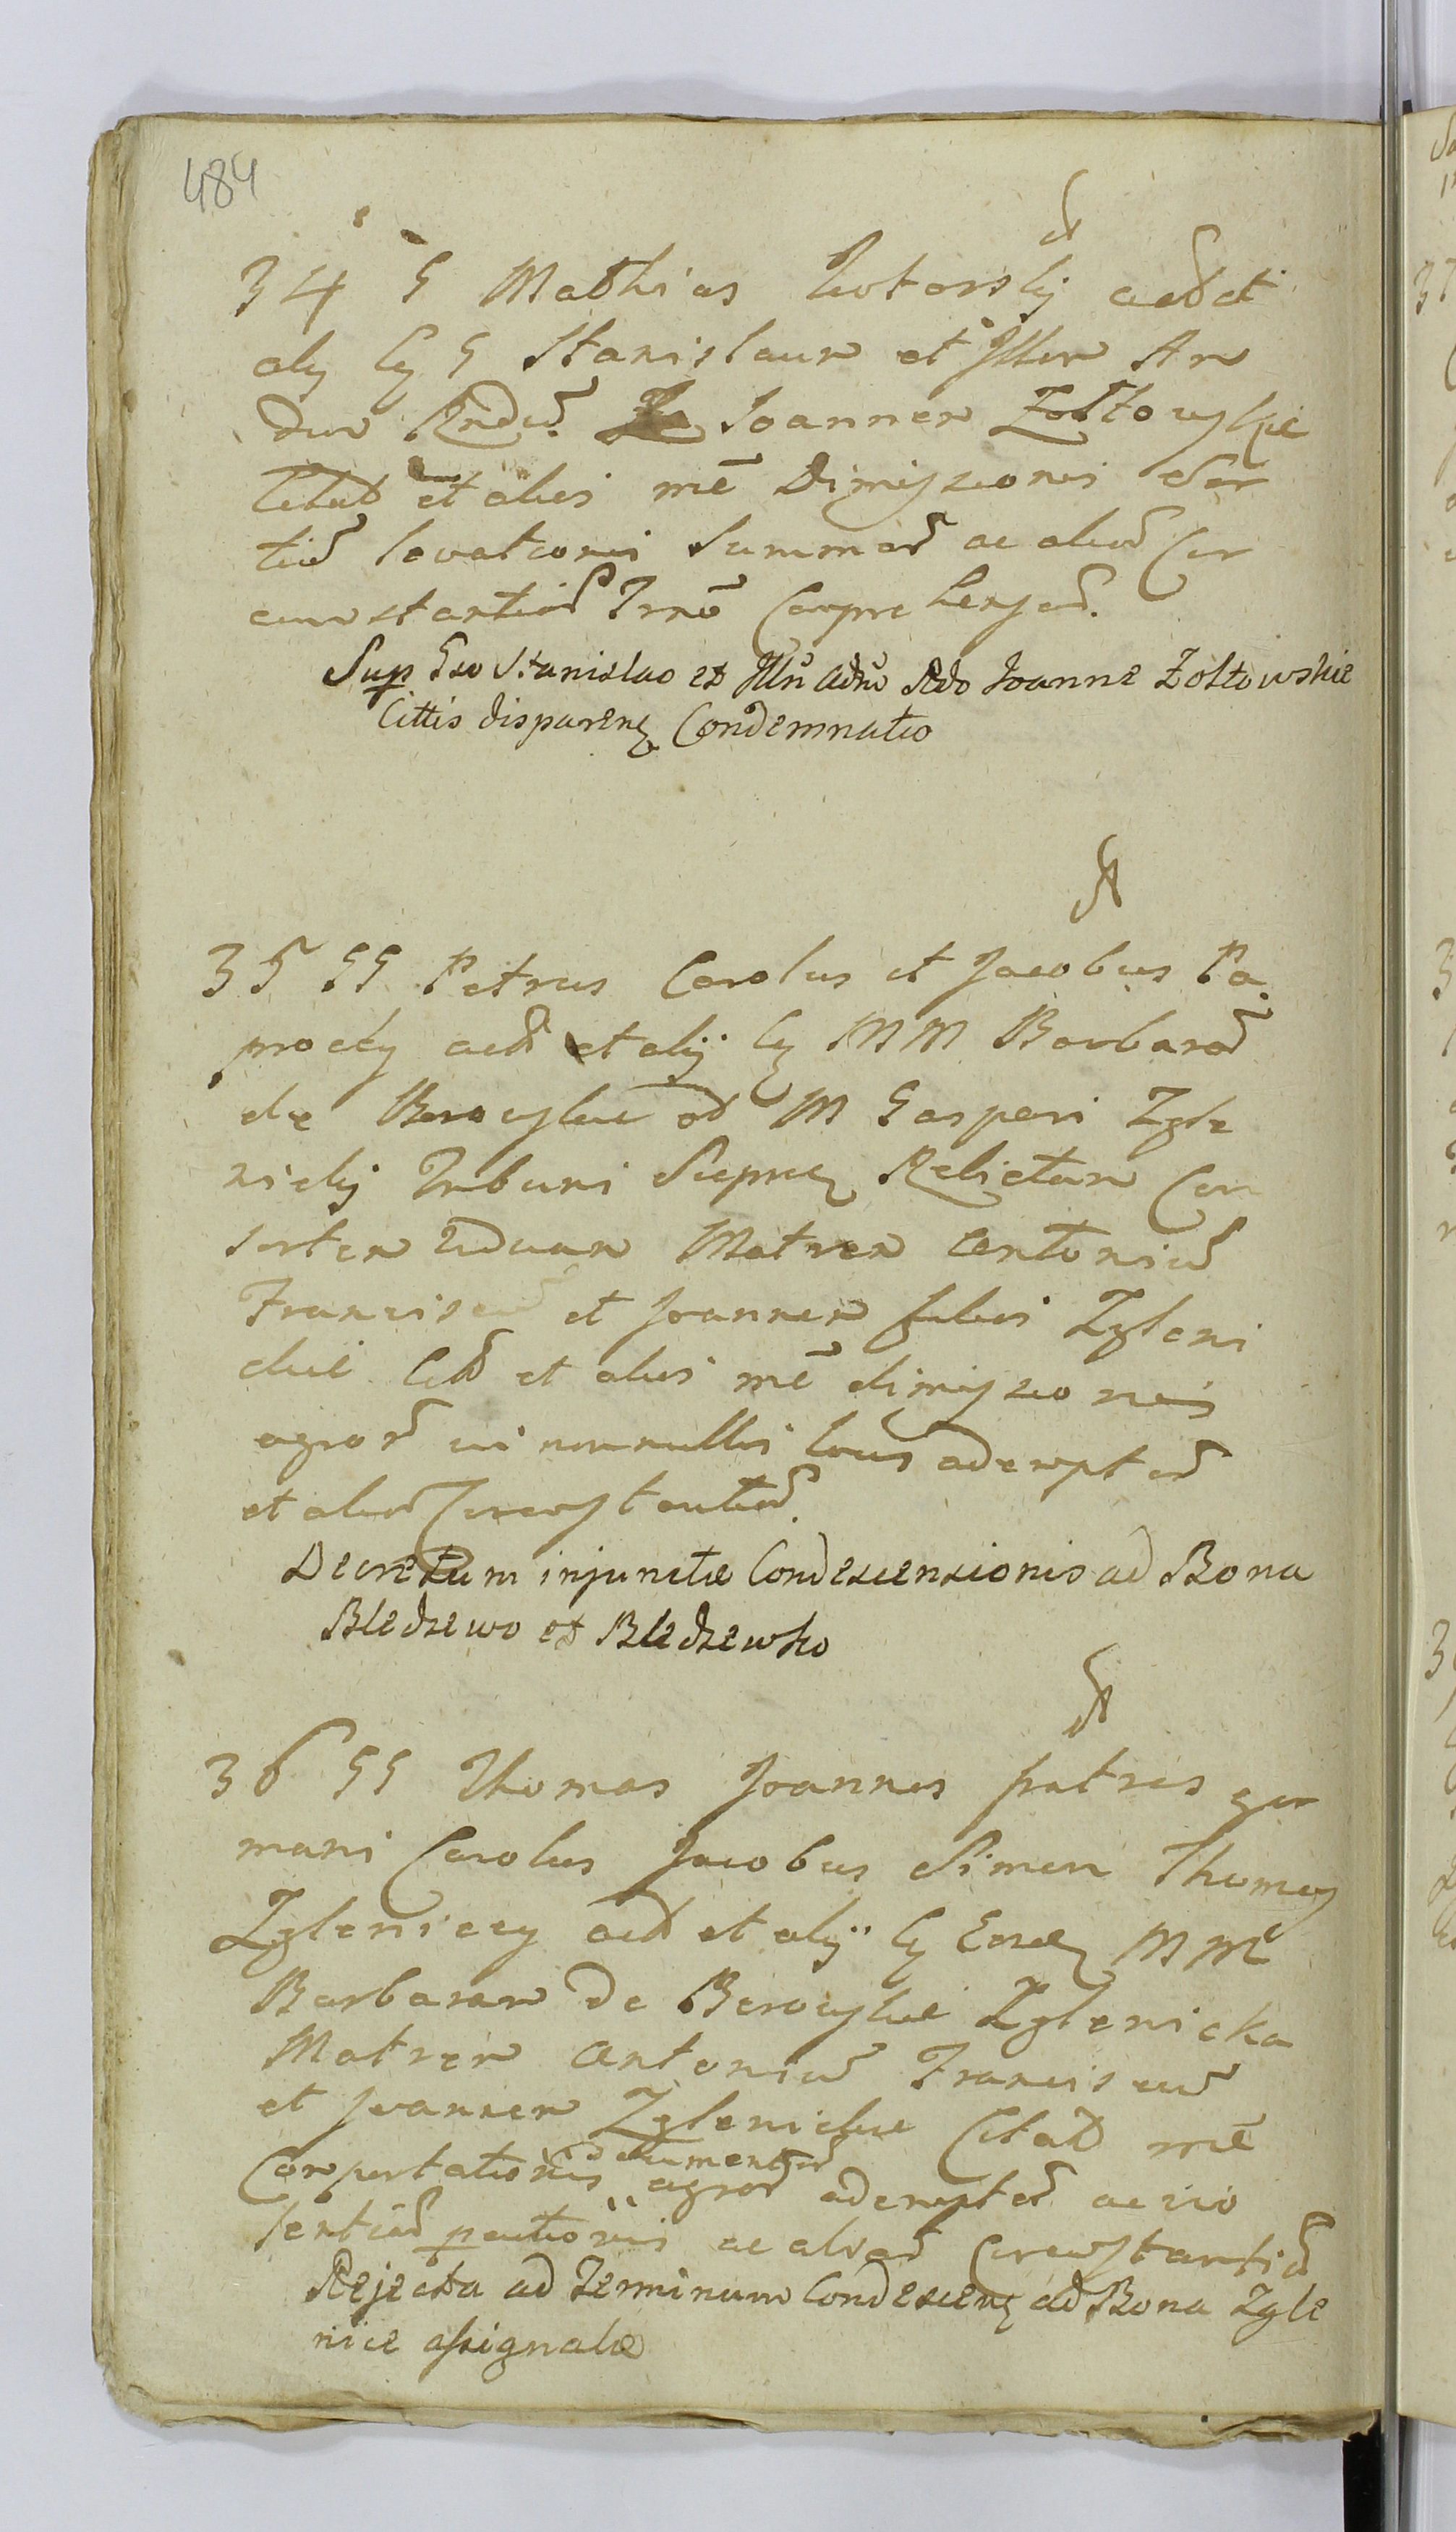 484
34 G Mathias Kotarskÿ actor et
alÿ Cÿ G Stanislaum et Illrem Ar
dum Rndum Joannem Zołtowskie
Citatos et alios mē Dimissionis Sor
tium levationis Summarum ac aliarum Cir
cumstantiarum Trnō Comprehensarum.
Sup Gso Stanislao et Illri Adm Rdo Joanne Zołtowskie
Cittis disparenz Condemnatio
35 GG Petrus Carolus et Jacobus Pa
procky act et alÿ Cÿ MM Barbaram
de olim M Gaspari Zgle
nickÿ Tribuni Relictam Con
sortem viduam Matrem Antonium
Franciscum et Joannem filios Zgleni
ckie Citt et alios mē dimissionis
agrorum in nonnullis locis ademptorum
et aliarum Circumstantiarum.
Decretum injunctæ Condescensionis ad Bona
Bledzewo et Bledzewko
36 GG Thomas Joannes fratres ger
mani Carolus Jacobus Simon Thomas
Zgleniccy act et alÿ Cÿ MM
Barbaram de Zglenicka
Matrem Antonium Franciscum
et Joannem Zglenickie Citatos mē
Comportationis documentorum agrorum ademptorum ac vio
lentiarum ac aliarum Circumstantiarum
Rejecta ad Terminum Condescenz ad Bona Zgle
nice assignatæ